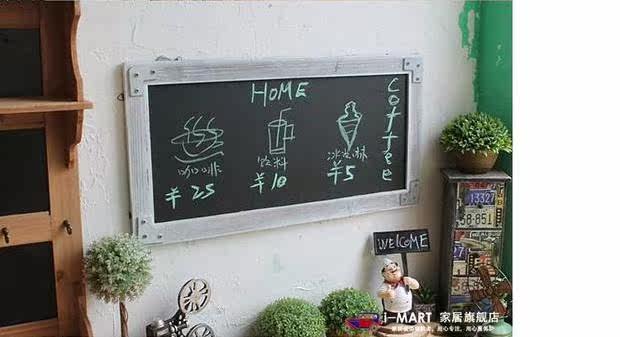 HOME
Coffee
咖啡
饮料
冰淇淋
¥ 25
¥ 10
¥ 5
WELCOME
13327
58-851
i-MART 家居旗舰店